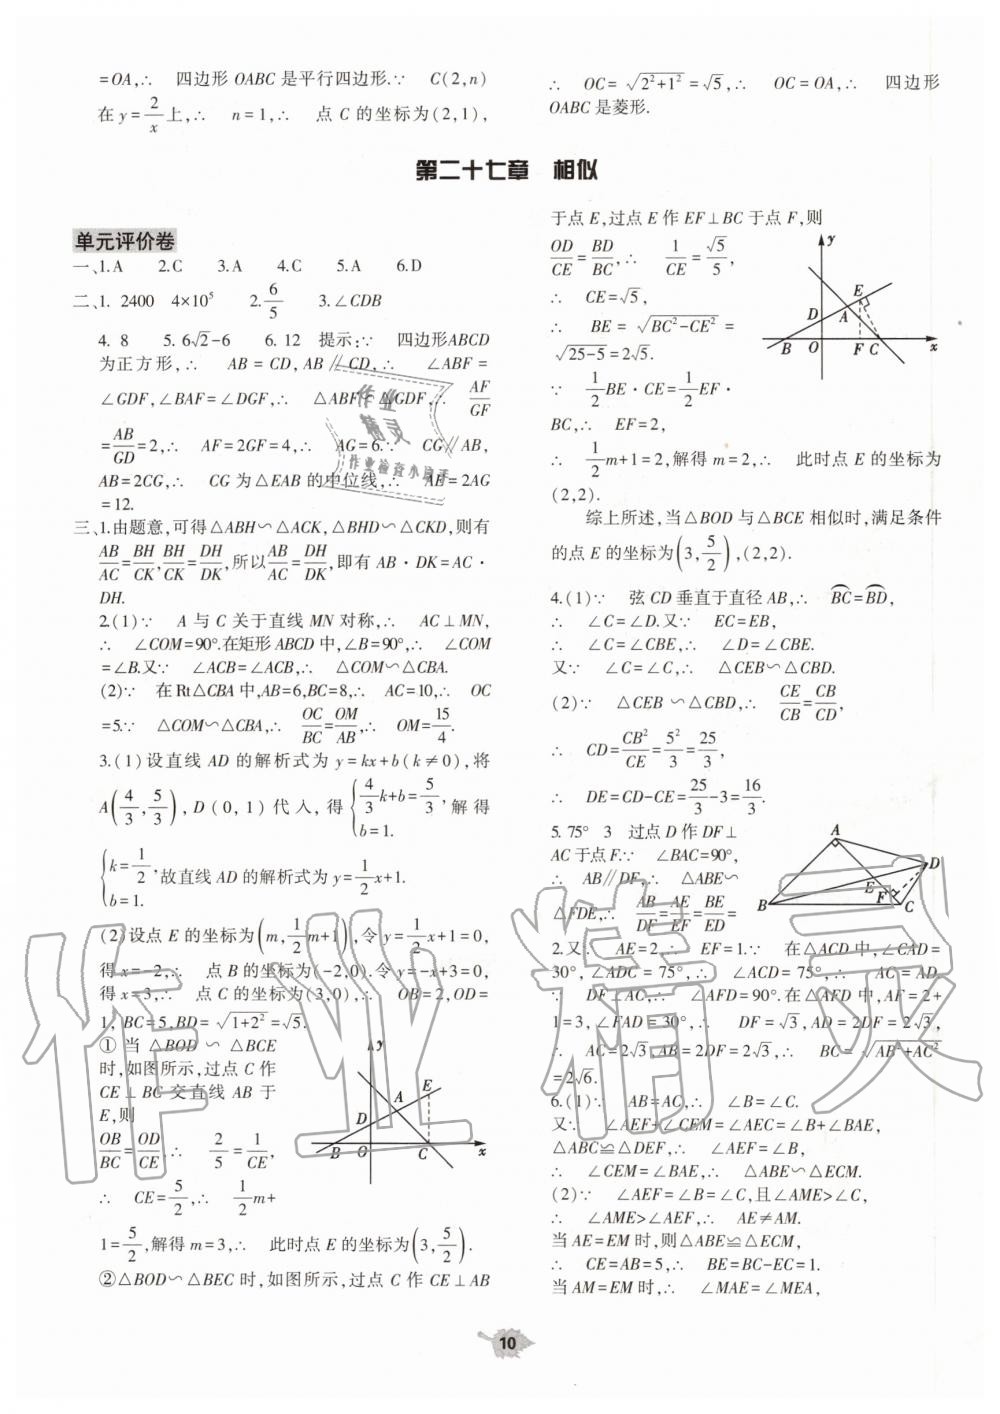 =OA,∴ 四边形 OABC 是平行四边形.∵ C(2,n)
在 y=2/x 上,∴ n=1,∴ 点 C 的坐标为(2,1),
∴ OC=√(2²+1²)=√5,∴ OC=OA,∴ 四边形
OABC 是菱形.
第二十七章 相似
单元评价卷
一、1.A 2.C 3.A 4.C 5.A 6.D
二、1. 2400 4×10⁵ 2.6/5 3.∠CDB
4. 8 5.6√2-6 6.12 提示:∵ 四边形ABCD
为正方形,∴ AB=CD,AB∥CD,∴ ∠ABF=
∠GDF,∠BAF=∠DGF,∴ △ABF∽△GDF,∴ AF/GF
=AB/GD=2,∴ AF=2GF=4,∴ AG=6.∵ CG∥AB,
AB=2CG,∴ CG 为△EAB 的中位线,∴ AE=2AG
=12.
三、1.由题意,可得△ABH∽△ACK,△BHD∽△CKD,则有
AB/AC=BH/CK,BH/CK=DH/DK,所以AB/AC=DH/DK,即有 AB·DK=AC·
DH.
2.(1)∵ A 与 C 关于直线 MN 对称,∴ AC⊥MN,
∴ ∠COM=90°.在矩形 ABCD 中,∠B=90°,∴ ∠COM
=∠B.又∵ ∠ACB=∠ACB,∴ △COM∽△CBA.
(2)∵ 在 Rt△CBA 中,AB=6,BC=8,∴ AC=10,∴ OC
=5.∵ △COM∽△CBA,∴ OC/BC=OM/AB,∴ OM=15/4.
3.(1)设直线 AD 的解析式为 y=kx+b(k≠0),将
A(4/3,5/3),D(0,1)代入,得{4/3k+b=5/3,解得
b=1.
{k=1/2,故直线 AD 的解析式为 y=1/2x+1.
b=1.
(2)设点 E 的坐标为(m,1/2m+1),令 y=1/2x+1=0,
得 x=-2,∴ 点 B 的坐标为(-2,0).令 y=-x+3=0,
得 x=3,∴ 点 C 的坐标为(3,0),∴ OB=2,OD=
1,BC=5,BD=√(1+2²)=√5.
① 当 △BOD ∽ △BCE
时,如图所示,过点 C 作
CE⊥BC 交直线 AB 于
E,则
OB/BC=OD/CE,∴ 2/5=1/CE,
∴ CE=5/2,∴ 1/2m+
1=5/2,解得 m=3,∴ 此时点 E 的坐标为(3,5/2).
y
E
A
D
B O C x
②△BOD∽△BEC 时,如图所示,过点 C 作 CE⊥AB
于点 E,过点 E 作 EF⊥BC 于点 F,则
OD/CE=BD/BC,∴ 1/CE=√5/5,
∴ CE=√5,
∴ BE=√(BC²-CE²)=
√(25-5)=2√5.
∵ 1/2BE·CE=1/2EF·
BC,∴ EF=2,
y
E
A
D
B O F C x
∴ 1/2m+1=2,解得 m=2,∴ 此时点 E 的坐标为
(2,2).
综上所述,当△BOD 与△BCE 相似时,满足条件
的点 E 的坐标为(3,5/2),(2,2).
4.(1)∵ 弦 CD 垂直于直径 AB,∴ BC=BD,
∴ ∠C=∠D.又∵ EC=EB,
∴ ∠C=∠CBE,∴ ∠D=∠CBE.
又∵ ∠C=∠C,∴ △CEB∽△CBD.
(2)∵ △CEB ∽△CBD,∴ CE/CB=CB/CD,
∴ CD=CB²/CE=5²/3=25/3,
∴ DE=CD-CE=25/3-3=16/3.
5. 75° 3 过点 D 作 DF⊥
AC 于点 F.∵ ∠BAC=90°,
∴ AB∥DF,∴ △ABE∽
△FDE,∴ AB/DF=AE/EF=BE/ED=
A
D
E
F
B C
2.又∵ AE=2,∴ EF=1.∵ 在△ACD 中,∠CAD=
30°,∠ADC=75°,∴ ∠ACD=75°,∴ AC=AD.
∵ DF⊥AC,∴ ∠AFD=90°.在△AFD 中,AF=2+
1=3,∠FAD=30°,∴ DF=√3,AD=2DF=2√3,
∴ AC=2√3,AB=2DF=2√3,∴ BC=√(AB²+AC²)
=2√6.
6.(1)∵ AB=AC,∴ ∠B=∠C.
又∵ ∠AEF+∠CEM=∠AEC=∠B+∠BAE,
△ABC≌△DEF,∴ ∠AEF=∠B,
∴ ∠CEM=∠BAE,∴ △ABE∽△ECM.
(2)∵ ∠AEF=∠B=∠C,且∠AME>∠C,
∴ ∠AME>∠AEF,∴ AE≠AM.
当 AE=EM 时,则△ABE≌△ECM,
∴ CE=AB=5,∴ BE=BC-EC=1.
当 AM=EM 时,∴ ∠MAE=∠MEA,
10
作业精灵
作业
精灵
作业检查小助手